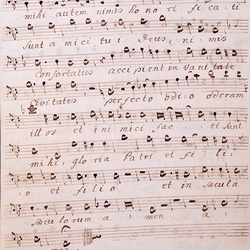 mihi autem nimis ho no ri fi ca ti
Sunt a mi ci tu i Deus, ni mis
Confortatus accipient in Vanitate
Civitates perfecto odio oderam
illos et ini mici fac ti sunt
mihi, gloria Patri et fi li
o et filio et in sæcula
sæculorum a men a